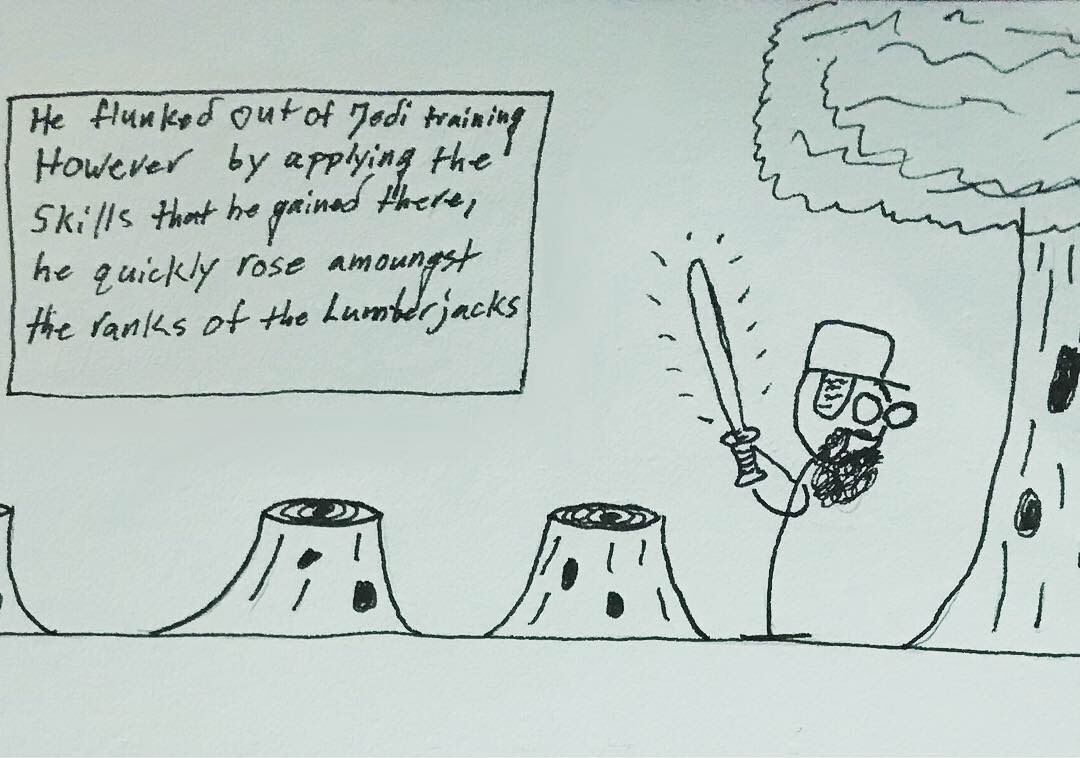 He flunked out of Jedi training
However by applying the
Skills that he gained there,
he quickly rose amoungst
the ranks of the Lumberjacks